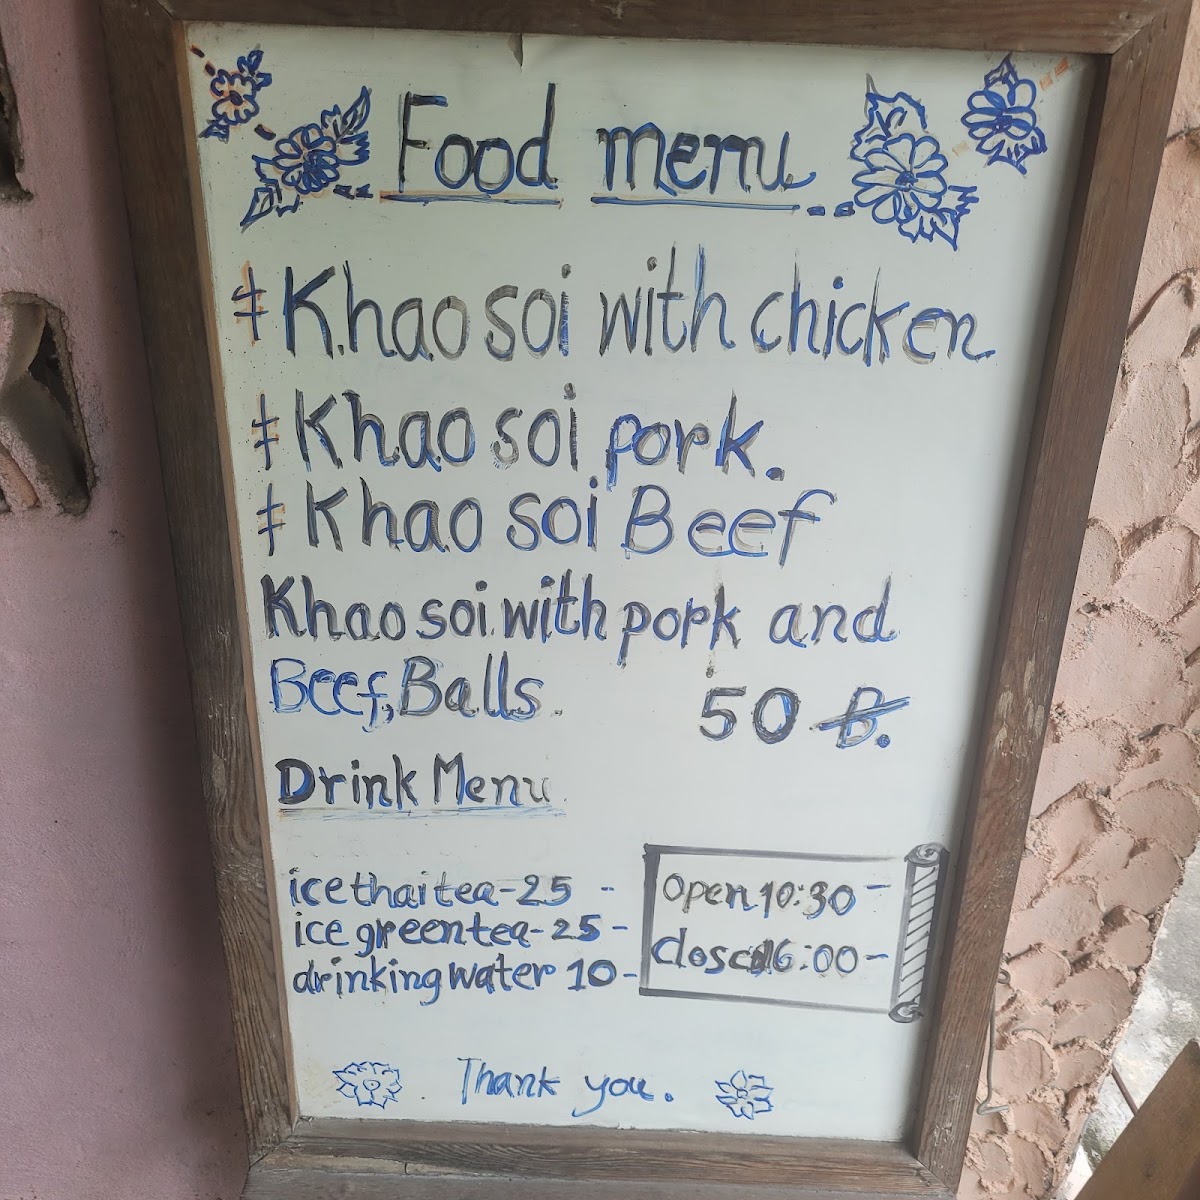 Food menu
‡ Khao soi with chicken
‡ Khao soi pork.
‡ Khao soi Beef
Khao soi with pork and
Beef, Balls.
50 B.
Drink Menu
ice thai tea - 25 -
ice green tea - 25 -
drinking water 10 -
Open 10:30 -
Closed 16:00 -
Thank you.